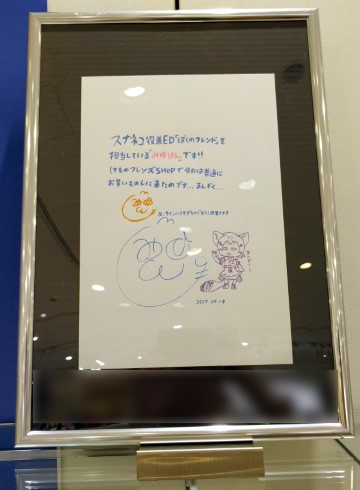 スナネコ役兼ED「ぼくのフレンド」を
担当している「みゆはん」です!!
けものフレンズSHOPで今日は普通に
お買いものしに来たのですが…まんぞく…
みゆはん
2017.09.18